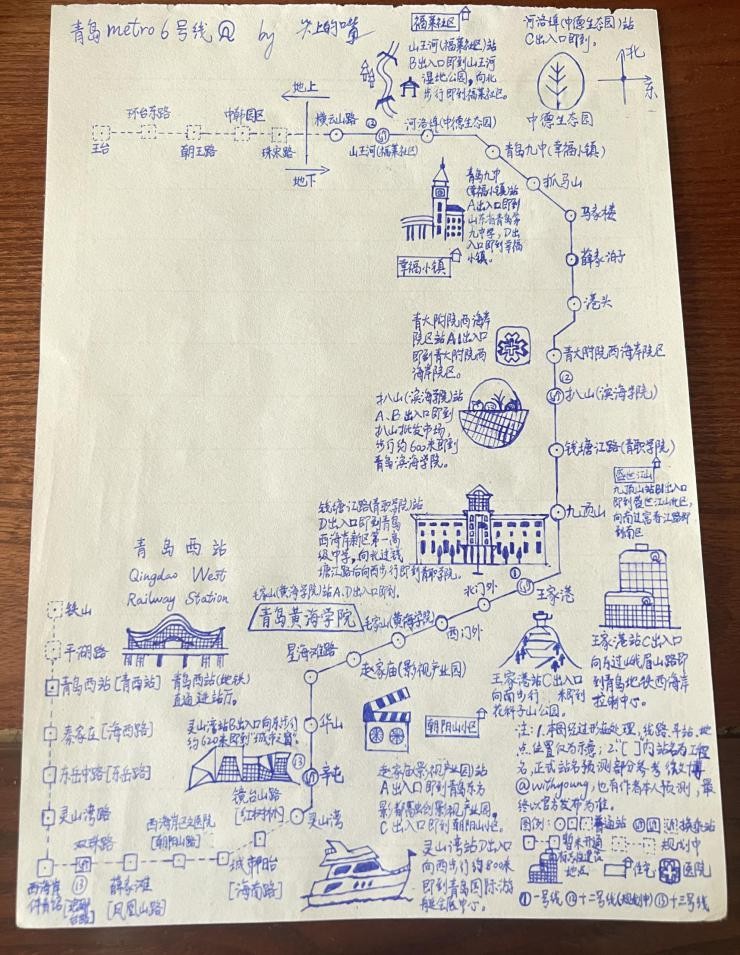 青岛metro6号线@ by 尖上的嘴
福莱社区
山王河(福莱社区)站
B出入口即到山王河
湿地公园,向北
步行即到福莱社区。
河洛埠(中德生态园)站
C出入口即到。
北
东
中德生态园
地上
地下
王台
环台东路
朝王路
中韩园区
珠宋路
横云山路
⑫
山王河(福莱社区)
河洛埠(中德生态园)
青岛九中(幸福小镇)
抓马山
马家楼
薛家泊子
港头
青岛九中
(幸福小镇)站
A出入口即到
山东省青岛第
九中学,D出
入口即到幸福
小镇。
幸福小镇
青大附院西海岸
院区站A1出入口
即到青大附院西
海岸院区。
青大附院西海岸院区
⑫
扒山(滨海学院)
扒山(滨海学院)站
A、B出入口即到
扒山批发市场,
步行约600米即到
青岛滨海学院。
钱塘江路(青职学院)
盛世江山
九顶山站B1出入口
即到盛世江山北区,
向南过富春江路即
到南区
九顶山
钱塘江路(青职学院)站
D出入口即到青岛
西海岸新区第一高
级中学,向北过钱
塘江路后向西步行即到青职学院。
毛家山(黄海学院)站A、D出入口即到。
青岛黄海学院
①
王家港
北门外
西门外
毛家山(黄海学院)
赵家庙(影视产业园)
星海滩路
华山
⑬
辛屯
灵山湾
王家港站C出入口
向南过峨眉山路即
到青岛地铁西海岸
控制中心。
王家港站C出入口
向南步行 米即到
花科子山公园。
青岛西站
Qingdao West
Railway Station
青岛西站(地铁)
直通进站厅。
铁山
平湖路
青岛西站[青西站]
秦家庄[海西路]
东岳中路[东岳路]
灵山湾路
双珠路
⑬
薛家滩
[凤凰山路]
西海岸中医医院
[朝阳山路]
城市阳台
[海南路]
镜台山路
[红树林]
灵山湾站B出入口向东步行
约620米即到"城市之窗"。
朝阳山小区
赵家庙(影视产业园)站
A出入口即到青岛东方
影都融创影视产业园,
C出入口即到朝阳山小区。
灵山湾站D出入口
向西步行约800米
即到青岛国际游
艇会展中心。
注:1.本图经过形态处理,线路、车站、地
点位置仅为示意;2.[ ]内站名为工程
名,正式站名预测部分参考微文博
@withyoung,也有作者本人预测,最
终以官方发布为准。
图例:
普通站
换乘站
暂未开通
规划中
地点
住宅
医院
①一号线 ⑫十二号线(规划中) ⑬十三号线